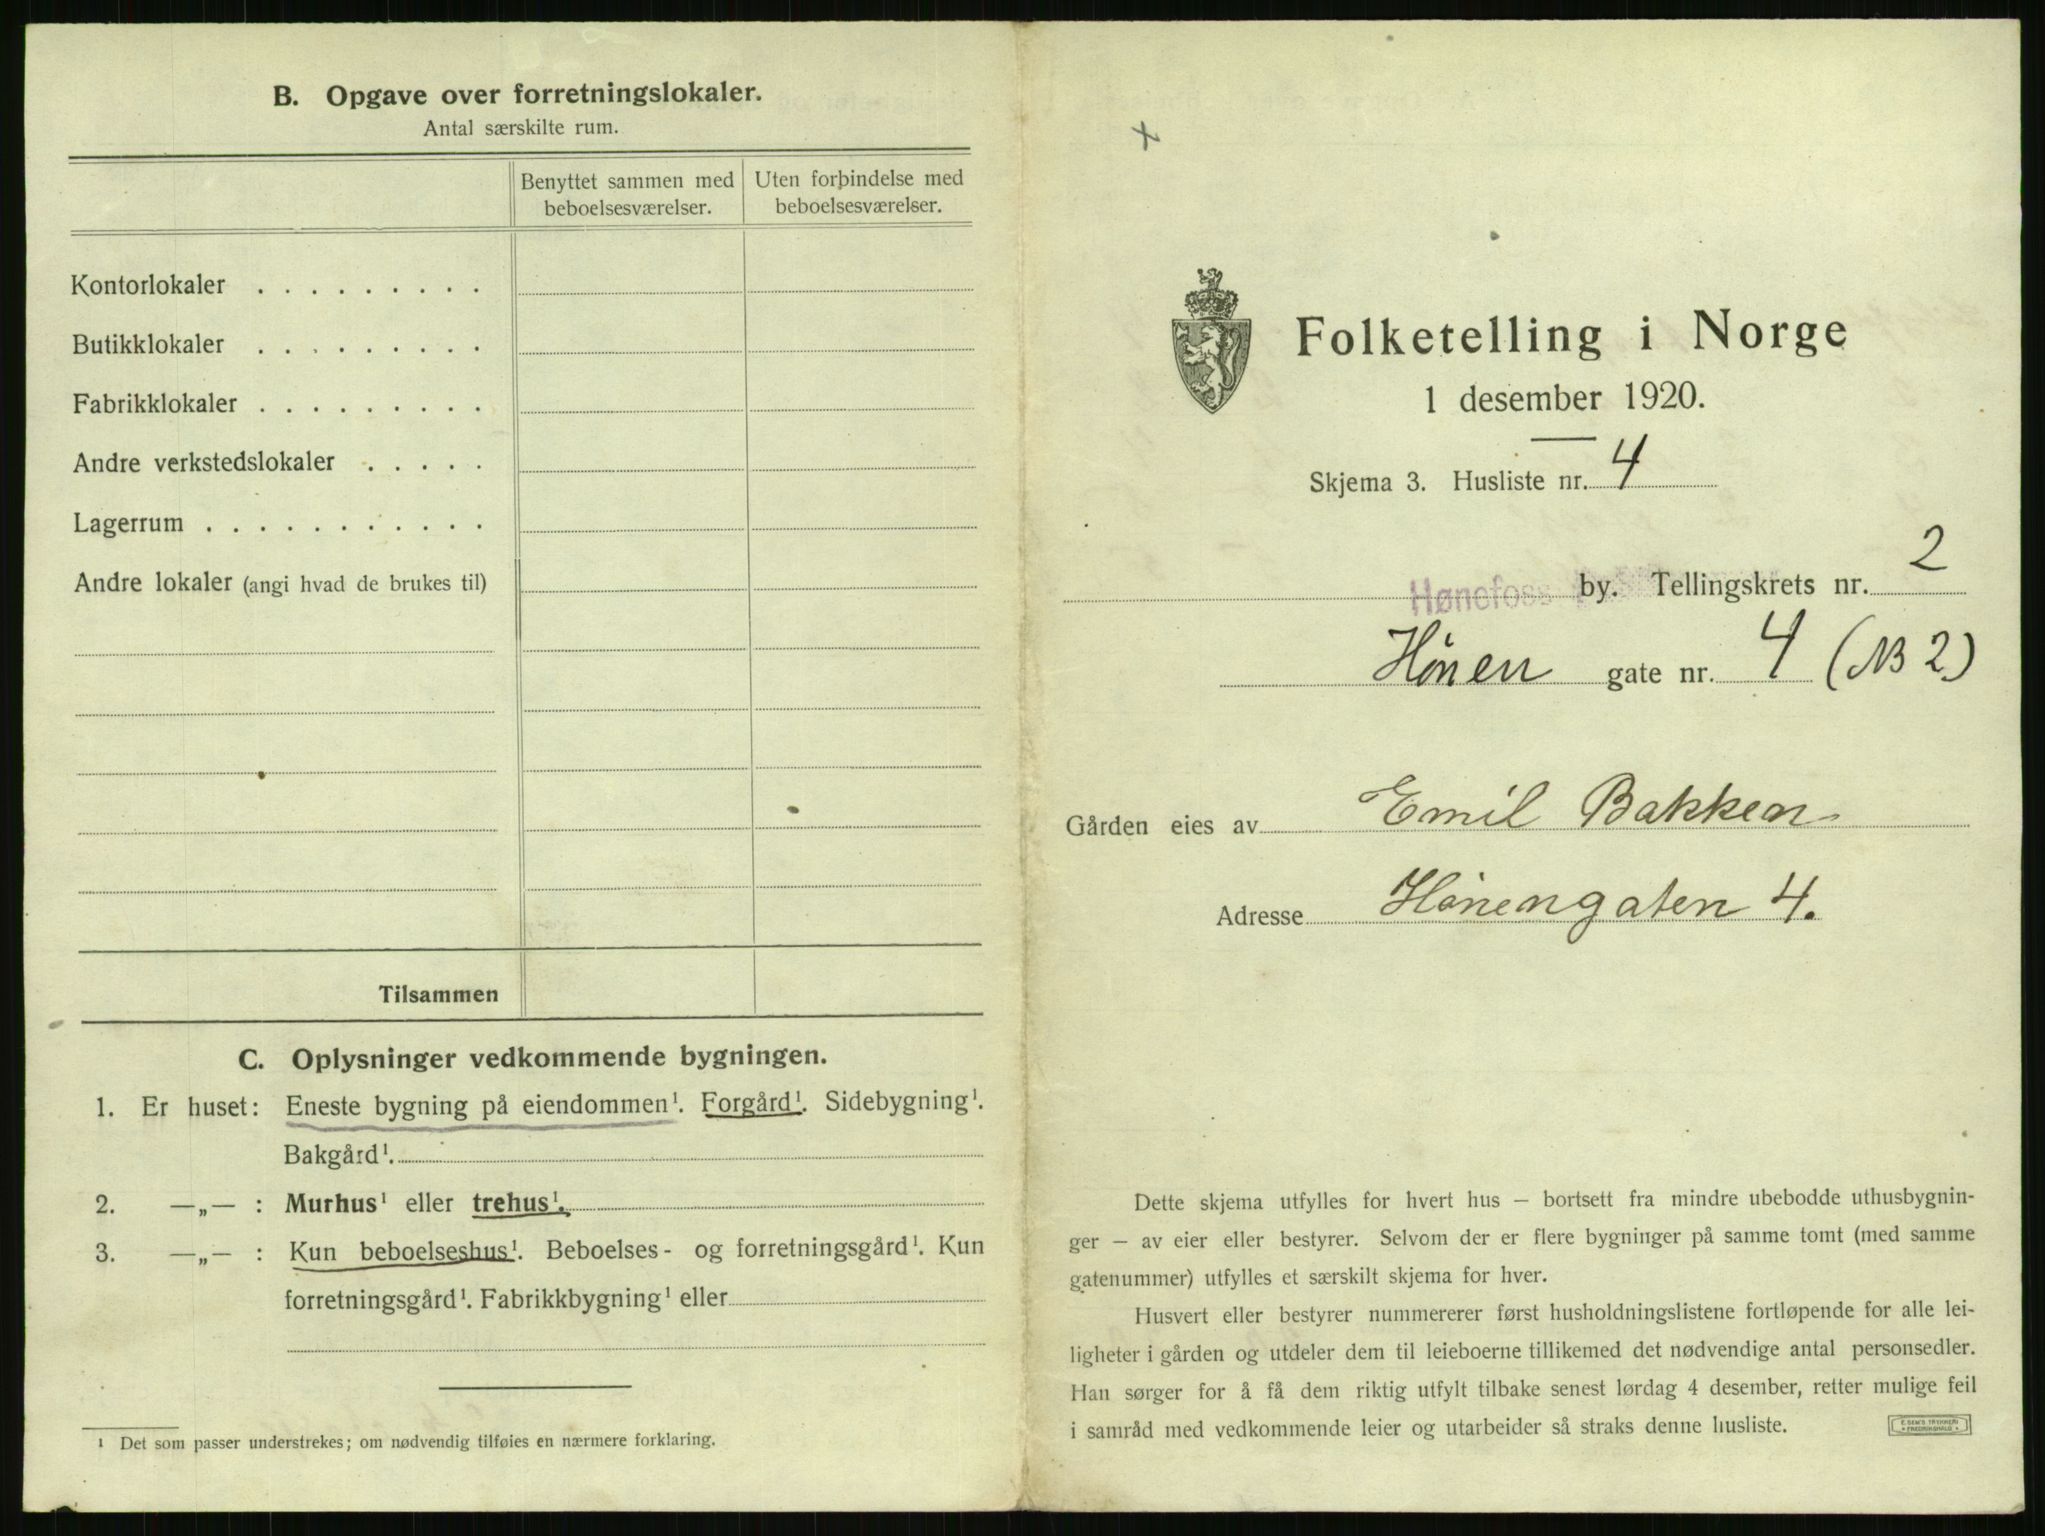 B. Opgave over forretningslokaler.
Antal særskilte rum.
Benyttet sammen med beboelsesværelser.
Uten forbindelse med beboelsesværelser.
Kontorlokaler . . . . . . . . .
Butikklokaler . . . . . . . . .
Fabrikklokaler . . . . . . . . .
Andre verkstedslokaler . . . . .
Lagerrum . . . . . . . . . . .
Andre lokaler (angi hvad de brukes til)
Tilsammen
C. Oplysninger vedkommende bygningen.
1. Er huset: Eneste bygning på eiendommen¹. Forgård¹. Sidebygning¹.
Bakgård¹.
2. —„— : Murhus¹ eller trehus¹.
3. —„— : Kun beboelseshus¹. Beboelses- og forretningsgård¹. Kun
forretningsgård¹. Fabrikkbygning¹ eller
¹ Det som passer understrekes; om nødvendig tilføies en nærmere forklaring.
Folketelling i Norge
1 desember 1920.
Skjema 3. Husliste nr. 4
Hønefoss by. Tellingskrets nr. 2
Hønen gate nr. 4 (NB 2)
Gården eies av Emil Bakken
Adresse Hønengaten 4.
Dette skjema utfylles for hvert hus — bortsett fra mindre ubebodde uthusbygnin-
ger — av eier eller bestyrer. Selvom der er flere bygninger på samme tomt (med samme
gatenummer) utfylles et særskilt skjema for hver.
Husvert eller bestyrer nummererer først husholdningslistene fortløpende for alle lei-
ligheter i gården og utdeler dem til leieboerne tillikemed det nødvendige antal personsedler.
Han sørger for å få dem riktig utfylt tilbake senest lørdag 4 desember, retter mulige feil
i samråd med vedkommende leier og utarbeider så straks denne husliste.
E. SEM'S TRYKKERI
FREDRIKSHALD